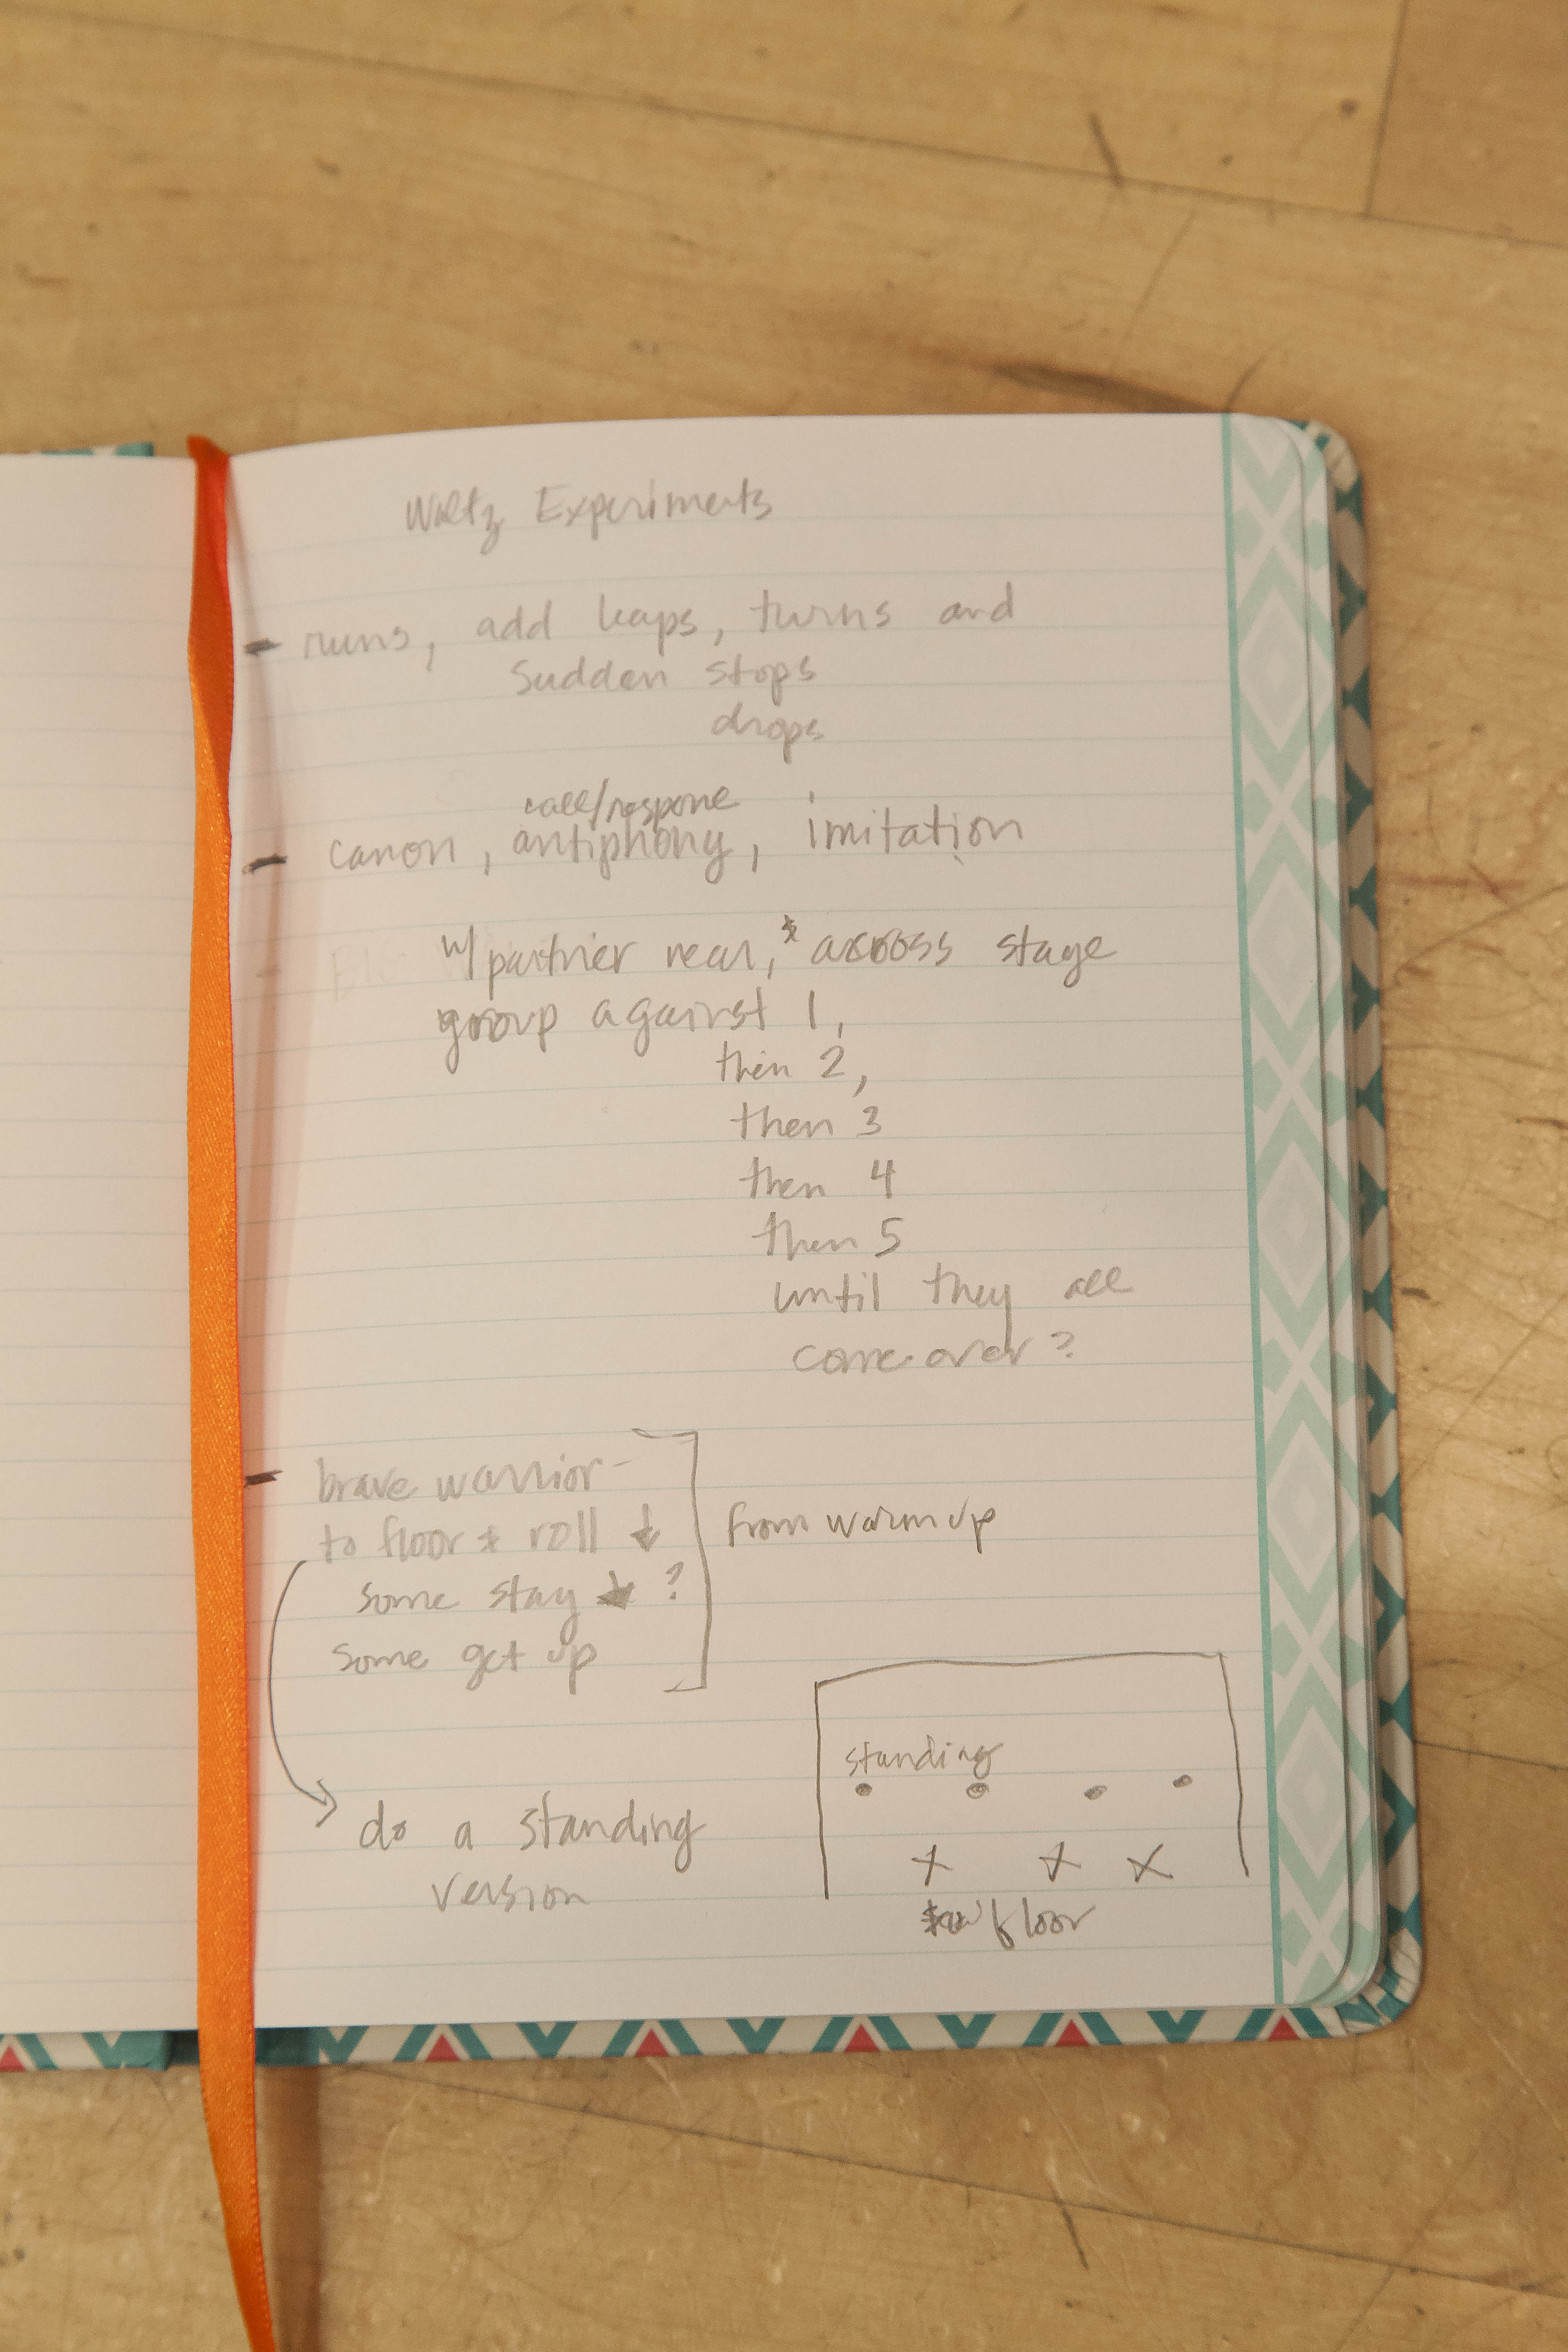 Waltz Experiments
- runs, add leaps, turns and
sudden stops
drops
call/response
- canon, antiphony, imitation
w/partner near, & across stage
group against 1,
then 2,
then 3
then 4
then 5
until they all
come over?
- brave warrior-
to floor & roll ↓
some stay ↓ ?
some get up
from warm up
do a standing
version
standing
x x x
floor